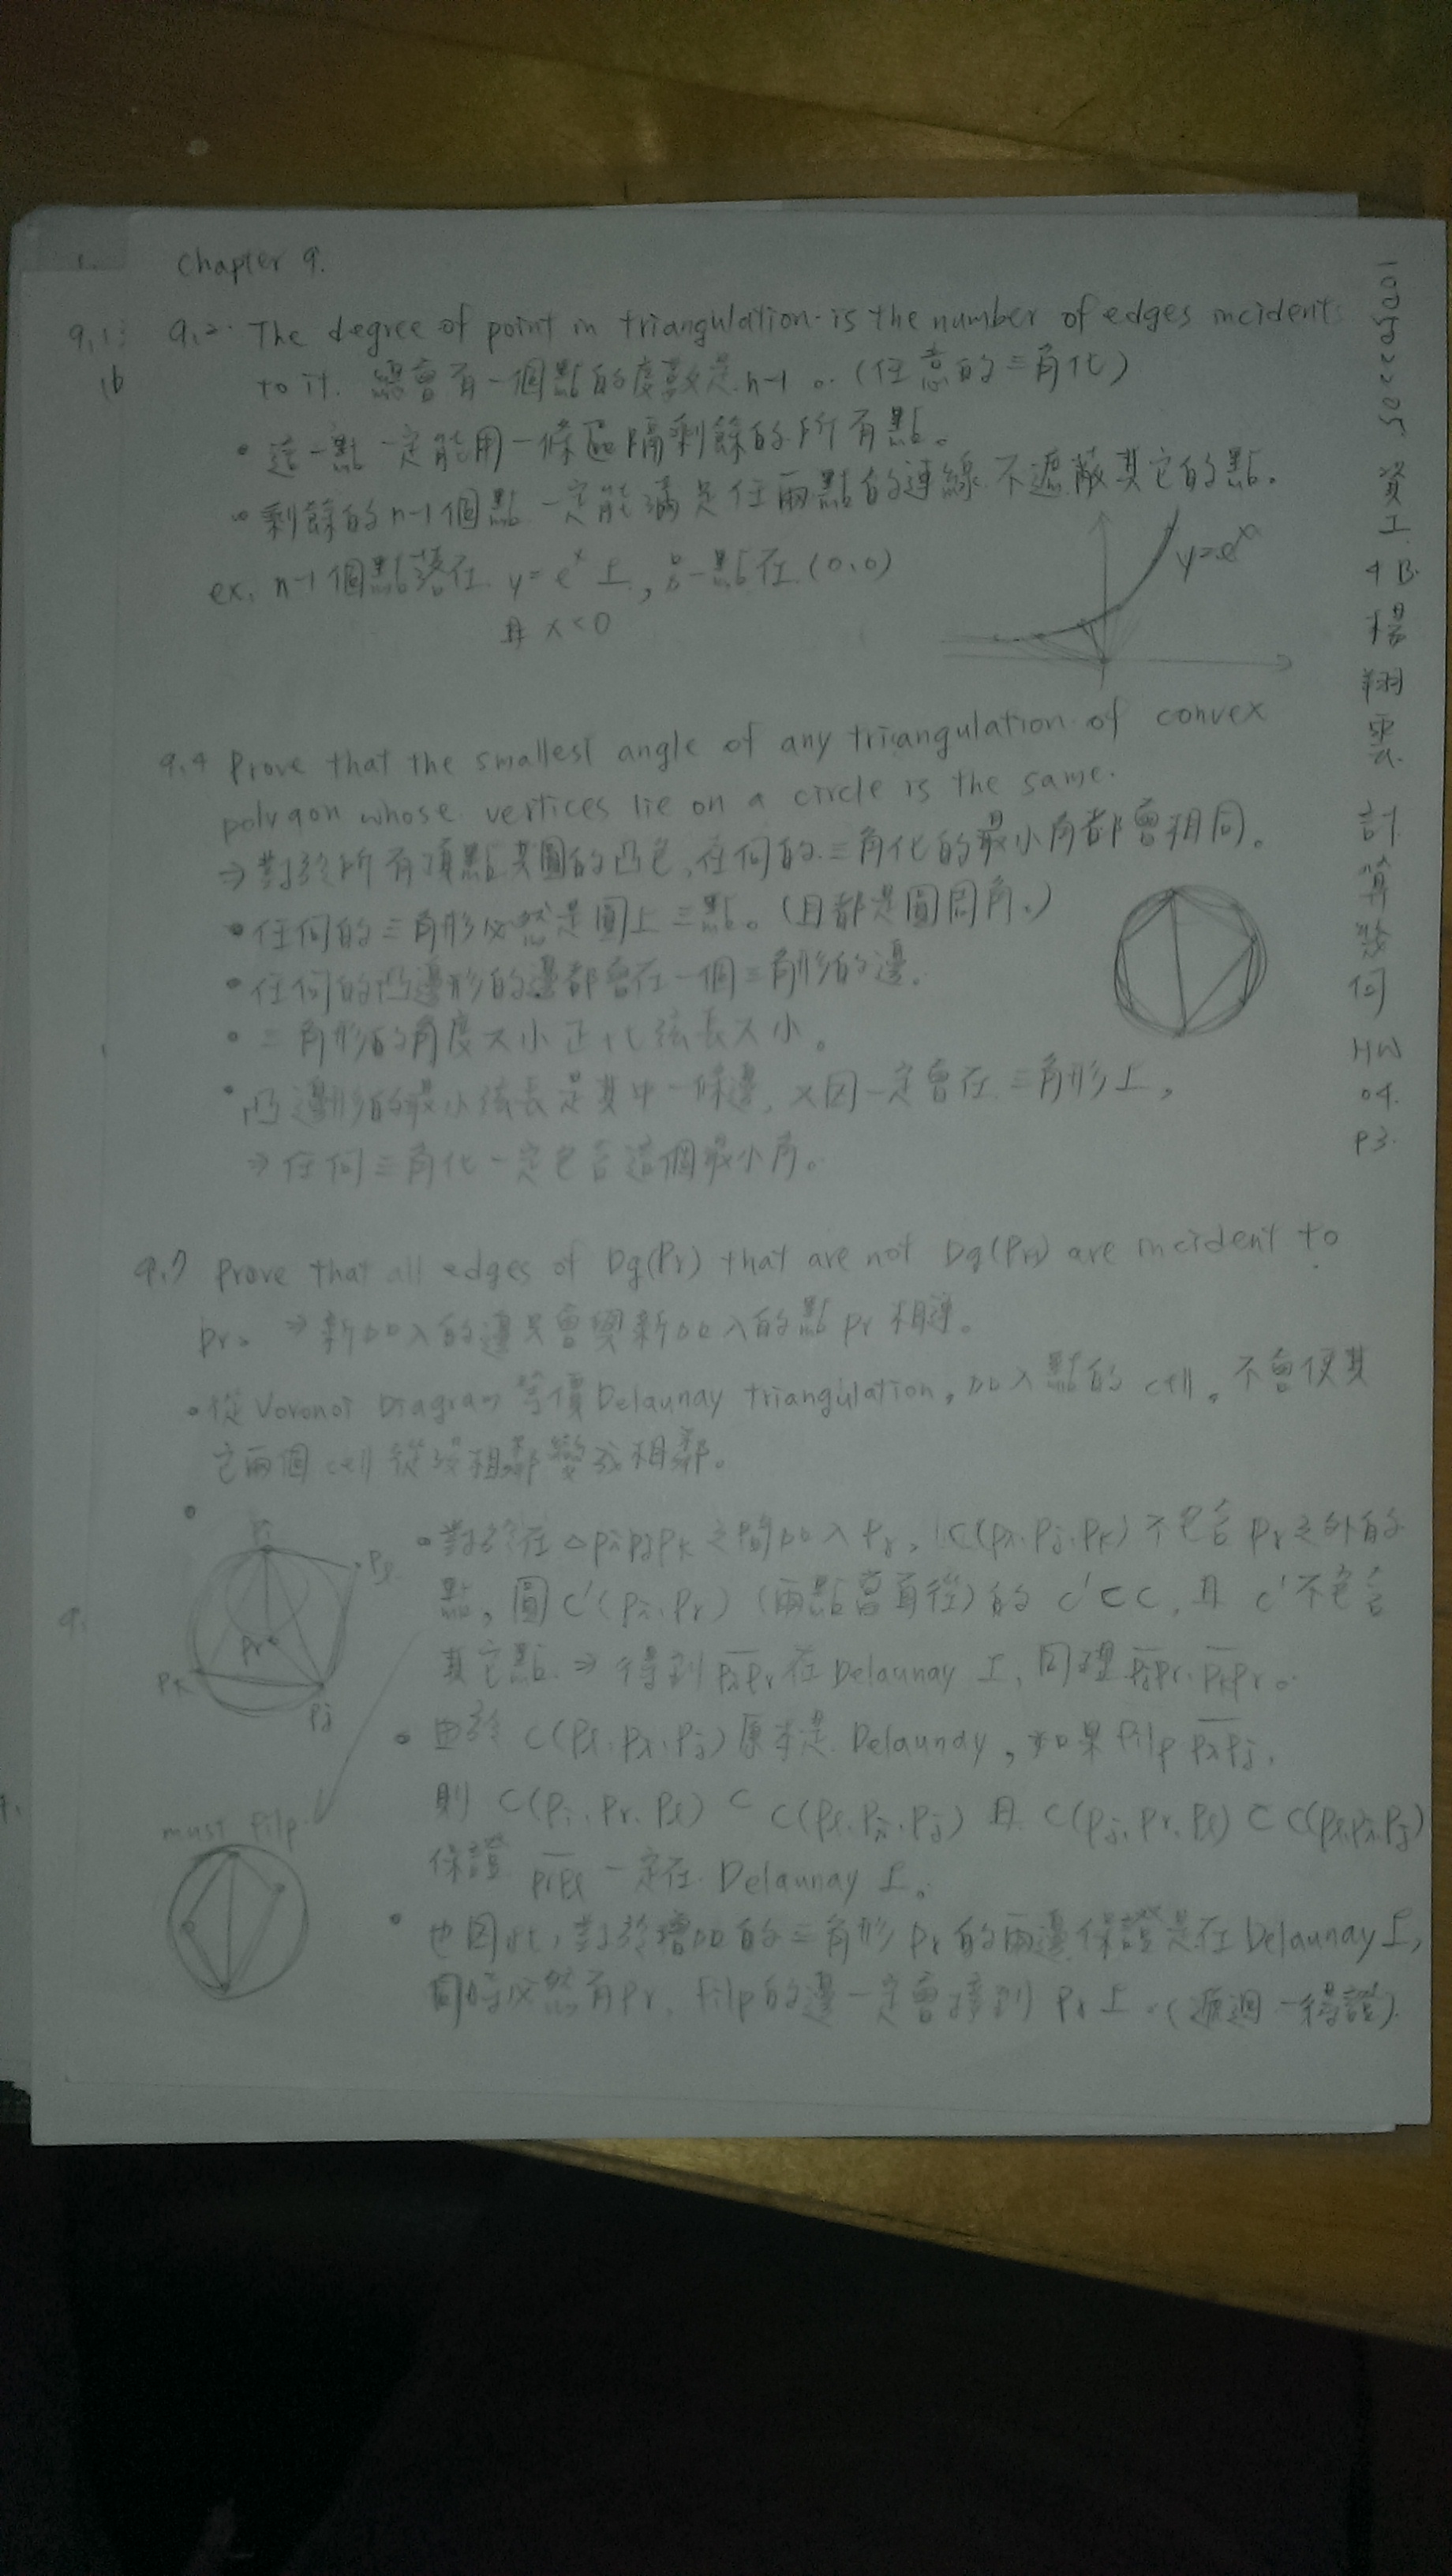 Chapter 9.
9.1:
9.2. The degree of point in triangulation is the number of edges incident
to it. 總會有一個點的度數是 n-1。(任意的三角化)
• 這一點一定能用一條區隔剩餘的所有點。
• 剩餘的 n-1 個點一定能滿足任兩點的連線不遮蔽其它的點。
ex. n-1 個點落在 y=e^x 上, 另一點在 (0,0)
且 x<0
y=e^x
9.4 Prove that the smallest angle of any triangulation of convex
polygon whose vertices lie on a circle is the same.
⇒ 對於所有頂點共圓的凸包, 任何的三角化的最小角都會相同。
• 任何的三角形必然是圓上三點。(且都是圓周角。)
• 任何的凸邊形的邊都會在一個三角形的邊。
• 三角形的角度大小正比弦長大小。
• 凸邊形的最小弦長是其中一條邊, 又因一定會在三角形上,
⇒ 任何三角化一定包含這個最小角。
9.7 Prove that all edges of Dg(Pr) that are not Dg(Pr-1) are incident to
Pr。 ⇒ 新加入的邊只會與新加入的點 Pr 相連。
• 從 Voronoi Diagram 等價 Delaunay triangulation, 加入點的 cell。不會使其
它兩個 cell 從沒相鄰變成相鄰。
Pi
Pl
Pr
Pk
Pj
• 對於在 △PiPjPk 之間加入 Pr, C(Pi,Pj,Pk) 不包含 Pr 之外的
點, 圓 C'(Pi,Pr) (兩點當直徑) 的 C'⊂C, 且 C' 不包含
其它點 ⇒ 得到 PiPr 在 Delaunay 上, 同理 PjPr、PkPr。
• 由於 C(Pl,Pi,Pj) 原本是 Delaunay, 如果 filp PiPj,
則 C(Pi,Pr,Pl) ⊂ C(Pl,Pi,Pj) 且 C(Pj,Pr,Pl) ⊂ C(Pl,Pi,Pj)
保證 PrPl 一定在 Delaunay 上。
must filp
• 也因此, 對於增加的三角形 Pr 的兩邊保證是在 Delaunay 上,
同時必然有 Pr, filp 的邊一定會接到 Pr 上。(遞迴得證)
資工
4B
楊
翔
雲
計
算
幾
何
HW
04
P3.